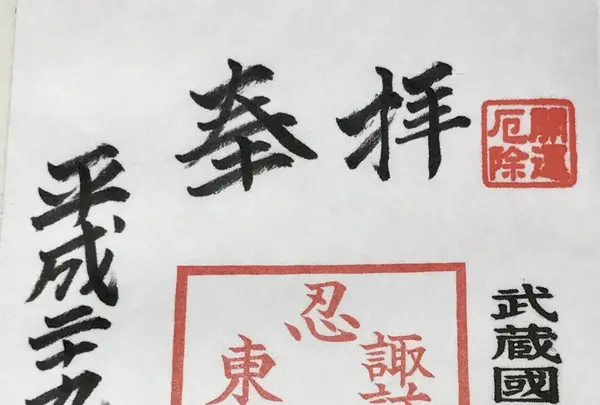 奉拝
開運
厄除
武蔵國
忍
諏訪
東
平成二十九